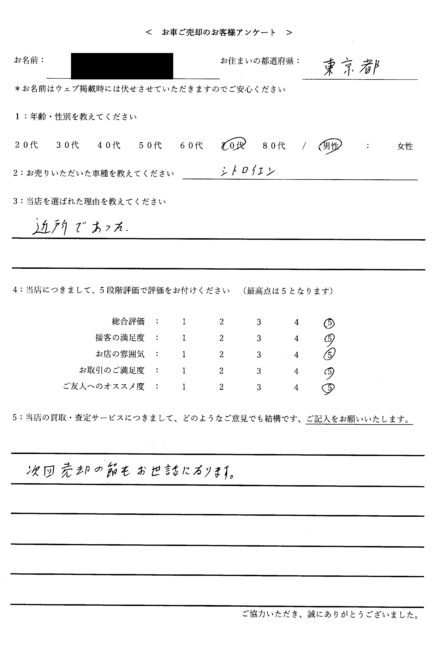 ＜ お車ご売却のお客様アンケート ＞
お名前： お住まいの都道府県： 東京都
＊お名前はウェブ掲載時には伏せさせていただきますのでご安心ください
1：年齢・性別を教えてください
20代 30代 40代 50代 60代 70代 80代 / 男性 ： 女性
2：お売りいただいた車種を教えてください シトロイエン
3：当店を選ばれた理由を教えてください
近所であった.
4：当店につきまして、5段階評価で評価をお付けください （最高点は5となります）
総合評価 ： 1 2 3 4 5
接客の満足度 ： 1 2 3 4 5
お店の雰囲気 ： 1 2 3 4 5
お取引のご満足度 ： 1 2 3 4 5
ご友人へのオススメ度 ： 1 2 3 4 5
5：当店の買取・査定サービスにつきまして、どのようなご意見でも結構です、ご記入をお願いいたします。
次回売却の節もお世話になります。
ご協力いただき、誠にありがとうございました。